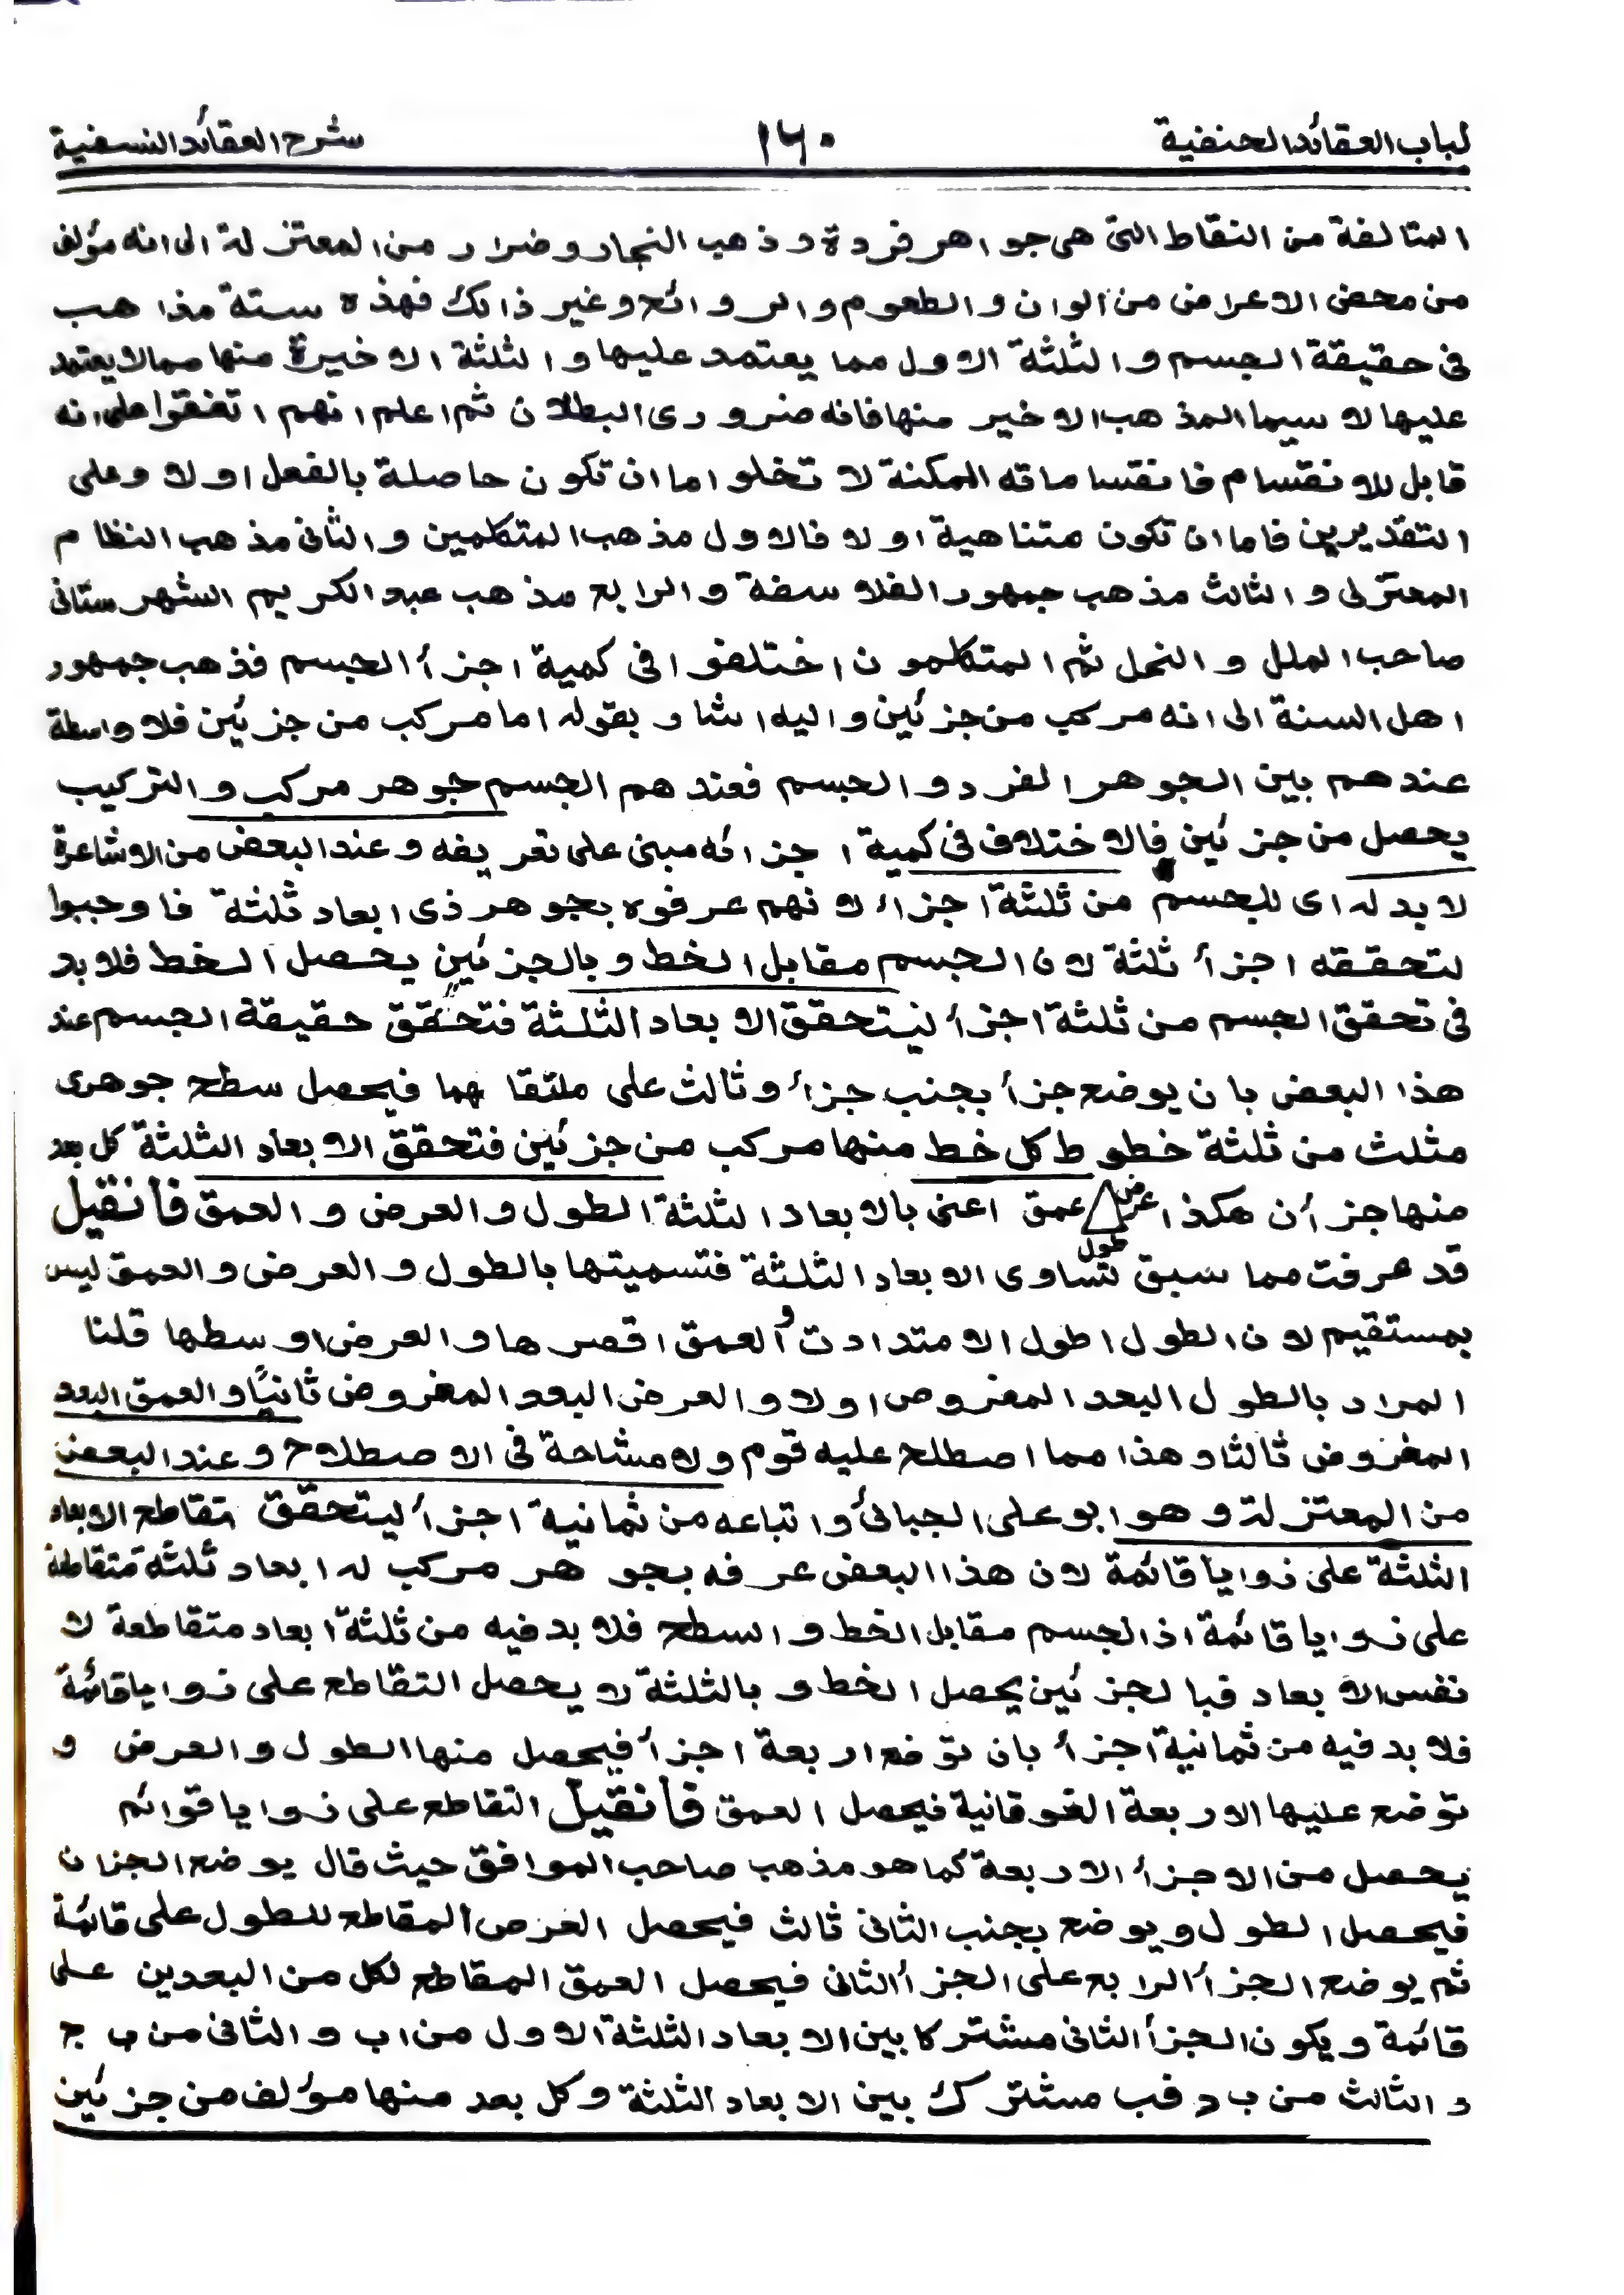 لباب العقائد الحنفية ١٦٠ شرح العقائد النسفية
المتالفة من النقاط التى هى جواهر فردة وذهب النجار وضرار من المعتزلة الى انه مؤلف
من محض الاعراض من الوان والطعوم والروائح وغير ذالك فهذه ستة مذاهب
فى حقيقة الجسم والثلثة الاول مما يعتمد عليها والثلثة الاخيرة منها مما لا يعتمد
عليها لا سيما المذهب الاخير منها فانه ضرورى البطلان ثم اعلم انهم اتفقوا على انه
قابل للانقسام فانقساماته الممكنة لا تخلوا ما ان تكون حاصلة بالفعل اولا وعلى
التقديرين فاما ان تكون متناهية اولا فالاول مذهب المتكلمين والثانى مذهب النظام
المعتزلى والثالث مذهب جمهور الفلاسفة والرابع مذهب عبد الكريم الشهرستانى
صاحب الملل والنحل ثم المتكلمون اختلفوا فى كمية اجزأ الجسم فذهب جمهور
اهل السنة الى انه مركب من جزئين واليه اشار بقوله اما مركب من جزئين فلا واسطة
عندهم بين الجوهر الفرد والجسم فعندهم الجسم جوهر مركب والتركيب
يحصل من جزئين فالاختلاف فى كمية اجزائه مبنى على تعريفه وعند البعض من الاشاعرة
لا بد له اى للجسم من ثلثة اجزاء لانهم عرفوه بجوهر ذى ابعاد ثلثة فاوجبوا
لتحققه اجزأ ثلثة لان الجسم مقابل الخط وبالجزئين يحصل الخط فلا بد
فى تحقق الجسم من ثلثة اجزأ ليتحقق الابعاد الثلثة فتحقق حقيقة الجسم عند
هذا البعض بان يوضع جزأ بجنب جزأ وثالث على ملتقاهما فيحصل سطح جوهرى
مثلث من ثلثة خطوط كل خط منها مركب من جزئين فتحقق الابعاد الثلثة كل بعد
منها جزأن هكذا عرض عمق اعنى بالابعاد الثلثة الطول والعرض والعمق فأنقيل
طول
قد عرفت مما سبق تساوى الابعاد الثلثة فتسميتها بالطول والعرض والعمق ليس
بمستقيم لان الطول اطول الامتدادت والعمق اقصرها والعرض اوسطها قلنا
المراد بالطول البعد المفروض اولا والعرض البعد المفروض ثانيًا والعمق البعد
المفروض ثالثا وهذا مما اصطلح عليه قوم ولا مشاحة فى الاصطلاح وعند البعض
من المعتزلة وهو ابو على الجبائى واتباعه من ثمانية اجزأ ليتحقق تقاطع الابعاد
الثلثة على زوايا قائمة لان هذا البعض عرفه بجوهر مركب له ابعاد ثلثة متقاطعة
على زوايا قائمة اذ الجسم مقابل الخط والسطح فلا بد فيه من ثلثة ابعاد متقاطعة لا
نفس الابعاد فبالجزئين يحصل الخط وبالثلثة لا يحصل التقاطع على زوايا قائمة
فلا بد فيه من ثمانية اجزأ بان توضع اربعة اجزأ فيحصل منها الطول والعرض و
توضع عليها الاربعة الفوقانية فيحصل العمق فأنقيل التقاطع على زوايا قوائم
يحصل من الاجزأ الاربعة كما هو مذهب صاحب الموافق حيث قال يوضع الجزان
فيحصل الطول ويوضع بجنب الثانى ثالث فيحصل العرض المقاطع للطول على قائمة
ثم يوضع الجزأ الرابع على الجزأ الثانى فيحصل العمق المقاطع لكل من البعدين على
قائمة ويكون الجزأ الثانى مشتركا بين الابعاد الثلثة الاول من ا ب والثانى من ب ج
والثالث من ب د فب مشترك بين الابعاد الثلثة وكل بعد منها مؤلف من جزئين